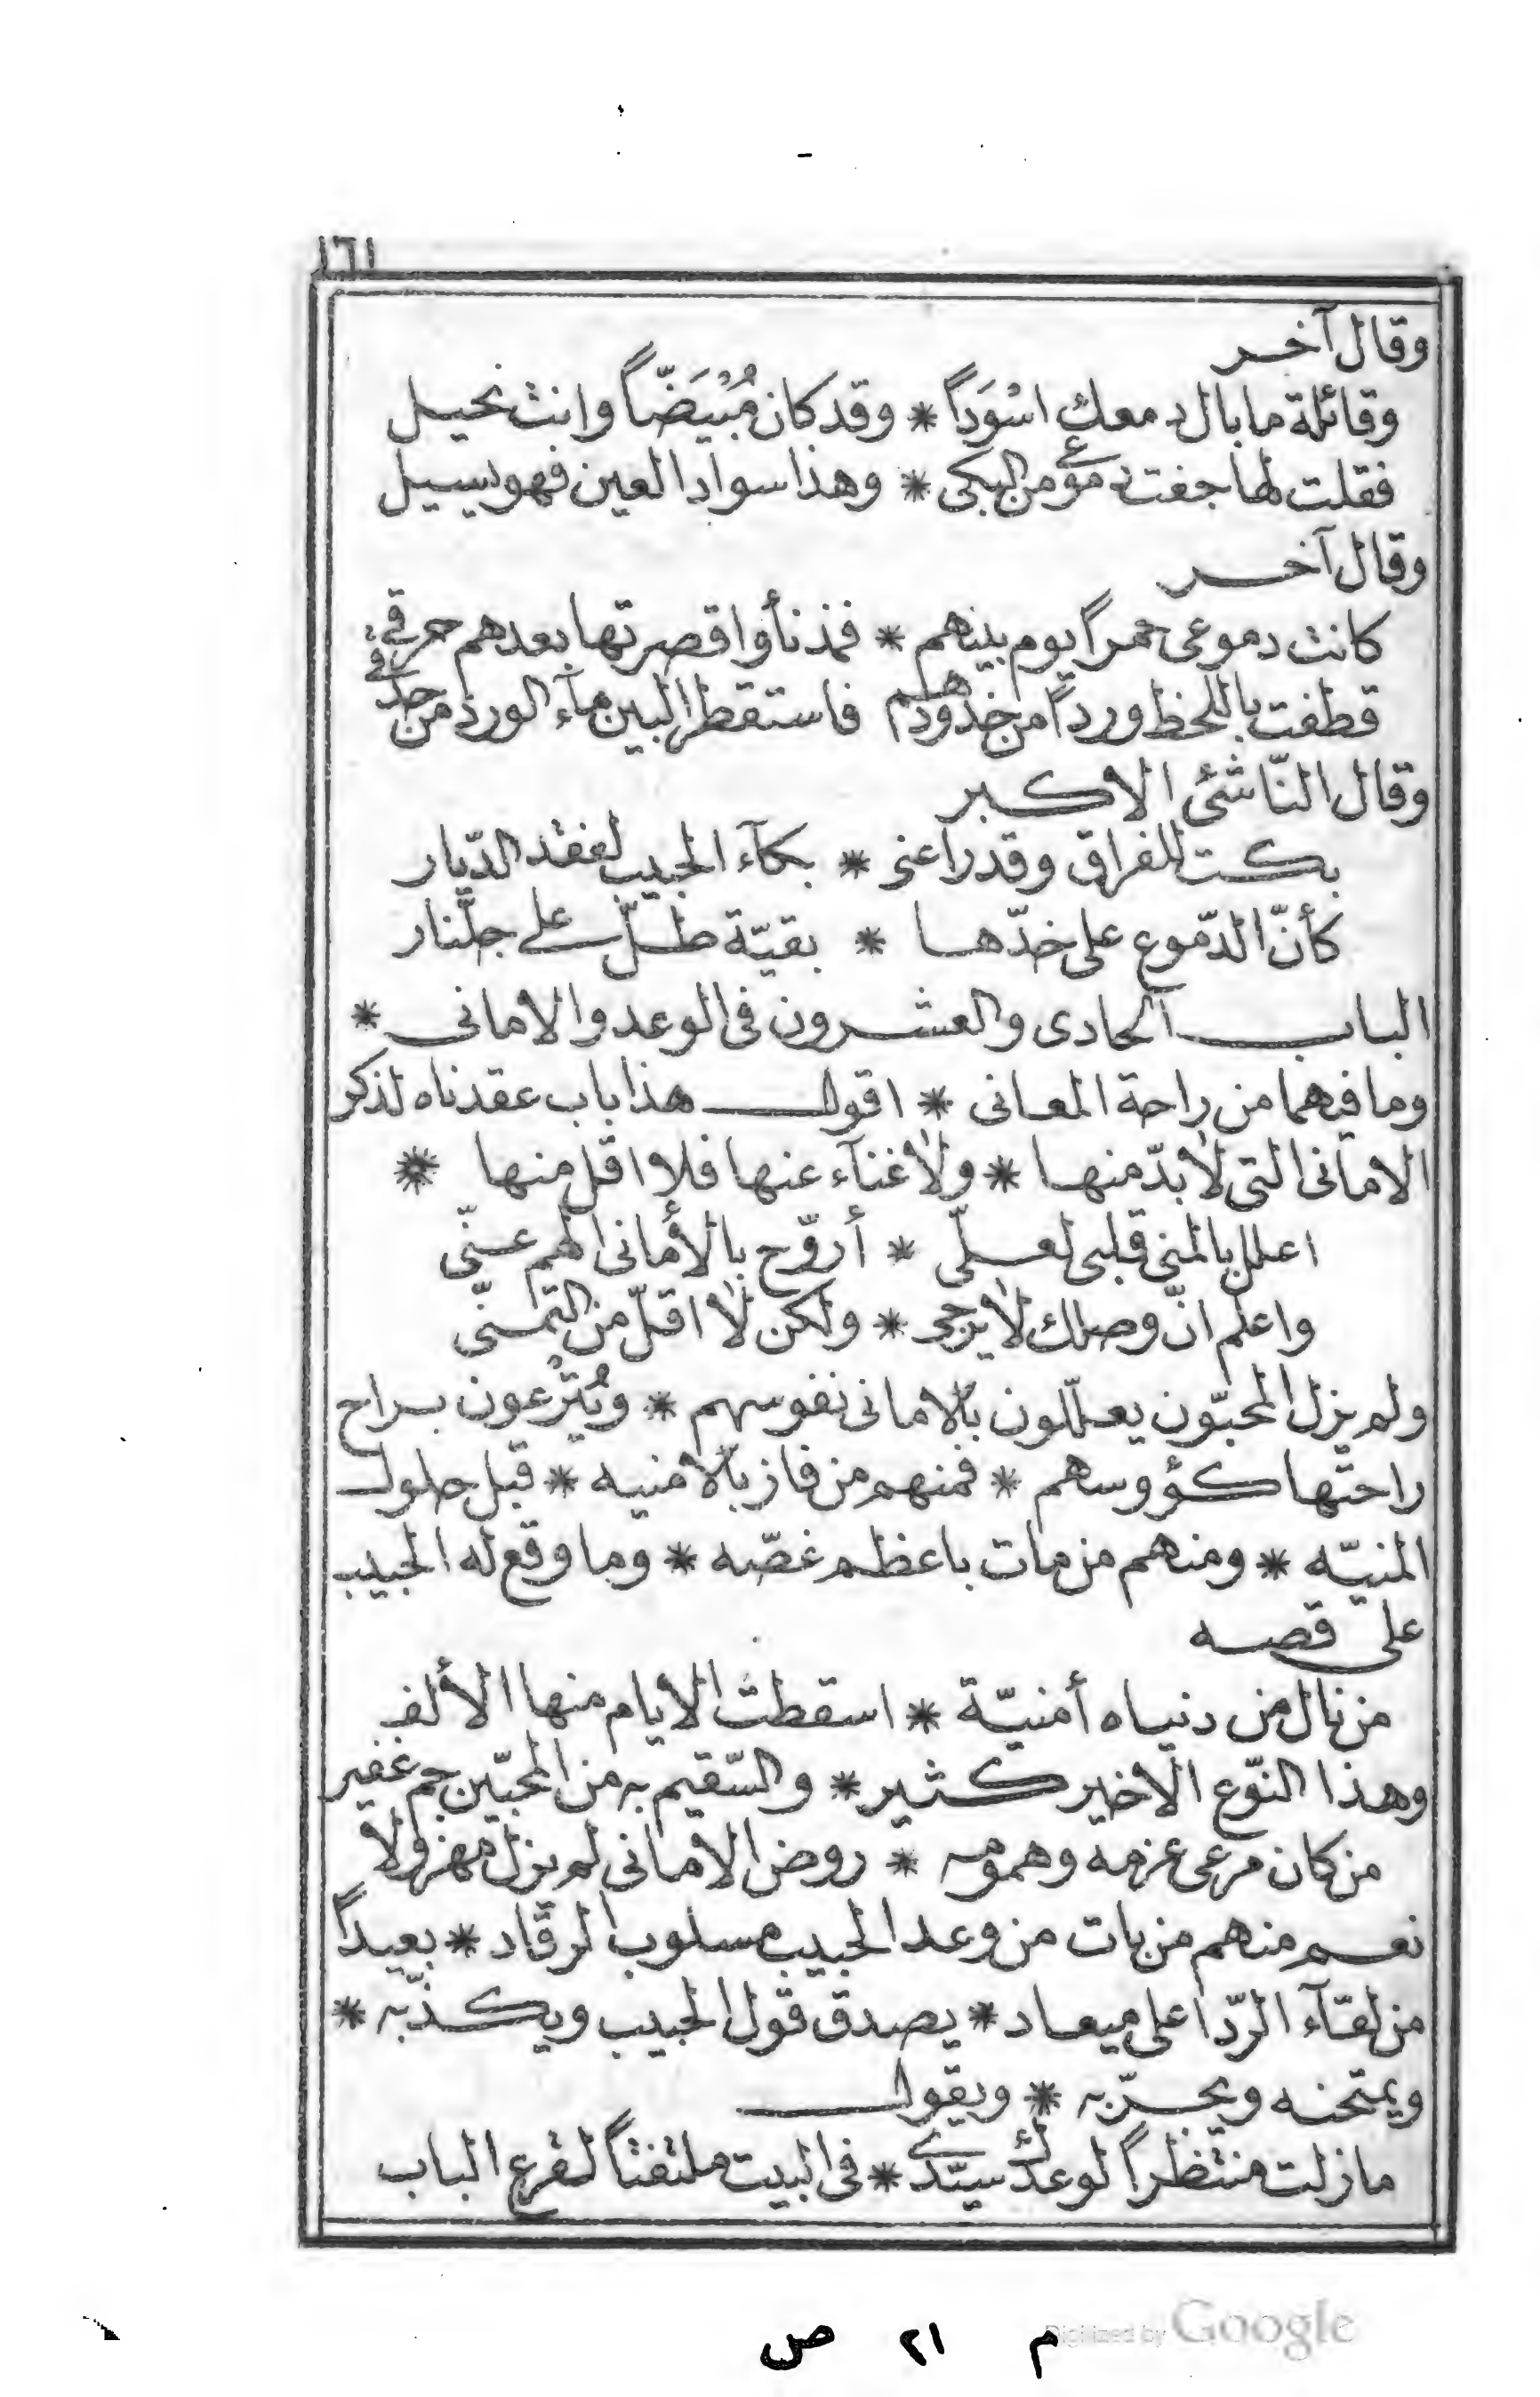 ١٦١
وقال آخر
وقائلة ما بال دمعك اسْوَداً * وقد كان مُبْيَضّاً وانت نحيل
فقلت لها جفت دموعي من البكى * وهذا سواد العين فهو يسيل
وقال آخر
كانت دموعى حمراً يوم بينهم * فمذ نأوا قصرتها بعدهم حرقي
قطفت باللحظ ورداً من خدودهم فاستقطر البين مآء الورد من حدقي
وقال النّاشئ الاكبر
بكت للفراق وقد راعنى * بكآء الحبيب لفقد الدّيار
كأنّ الدّموع على خدّها * بقيّة طلّ على جلّنار
الباب الحادى والعشرون فى الوعد والامانى *
وما فيهما من راحة المعانى * اقول هذا باب عقدناه لذكر
الامانى التى لا بدّ منها * ولا غنآء عنها فلا اقل منها *
اعلل بالمنى قلبى لعلّى * أروّح بالأمانى الهم عنّى
واعلم انّ وصلك لا يرجى * ولكن لا اقلّ من التمنّى
ولم يزل المحبّون يعلّلون بالامانى نفوسهم * ويُتْرعون براح
راحتها كؤوسهم * فمنهم من فاز بالامنيه * قبل حلول
المنيّه * ومنهم من مات باعظم غصّه * وما وقع له الحبيب
على قصه
من نال من دنياه أمنيّة * اسقطت الايام منها الألف
وهذا النّوع الاخير كثير * والسّقيم به من المحبّين جم غفير
من كان مرعى عزمه وهمومه * روض الامانى لم يزل مهزولا
نعم منهم من بات من وعد الحبيب مسلوب الرقاد * بعيداً
من لقآء الرّدا على ميعاد * يصدق قول الحبيب ويكذّبه *
ويمتحنه ويجرّبه * ويقول
ما زلت منتظراً لوعدك سيّدي * فى البيت ملتفتاً لقرع الباب
م ٢١ ص
Digitized by Google